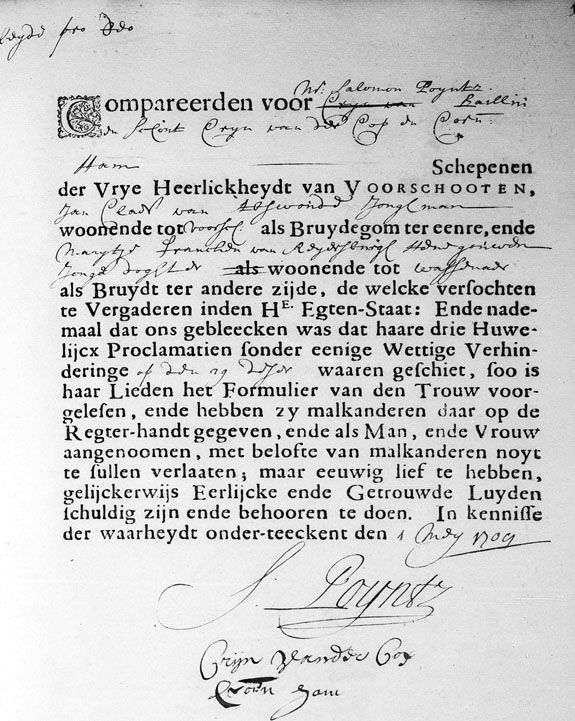 pro Deo
Compareerden voor Mr. Salomon Poyntz Bailliu
en Crijn van der Cop en Corn:
Ham Schepenen
der Vrye Heerlickheydt van VOORSCHOOTEN,
Jan Claas van Jongman
woonende tot voorsch: als Bruydegom ter eenre, ende
Marytje van
Jonge Doghter als woonende tot Wassenaer
als Bruydt ter andere zijde, de welcke versochten
te Vergaderen inden HE. Egten-Staat: Ende nade-
maal dat ons gebleecken was dat haare drie Huwe-
lijcx Proclamatien sonder eenige Wettige Verhin-
deringe op den 29 deser waaren geschiet, soo is
haar Lieden het Formulier van den Trouw voor-
gelesen, ende hebben zy malkanderen daar op de
Regter-handt gegeven, ende als Man, ende Vrouw
aangenoomen, met belofte van malkanderen noyt
te sullen verlaaten; maar eeuwig lief te hebben,
gelijckerwijs Eerlijcke ende Getrouwde Luyden
schuldig zijn ende behooren te doen. In kennisse
der waarheydt onder-teeckent den 1 Mey 1709
S. Poyntz
Crijn vander Cop
Corn Ham